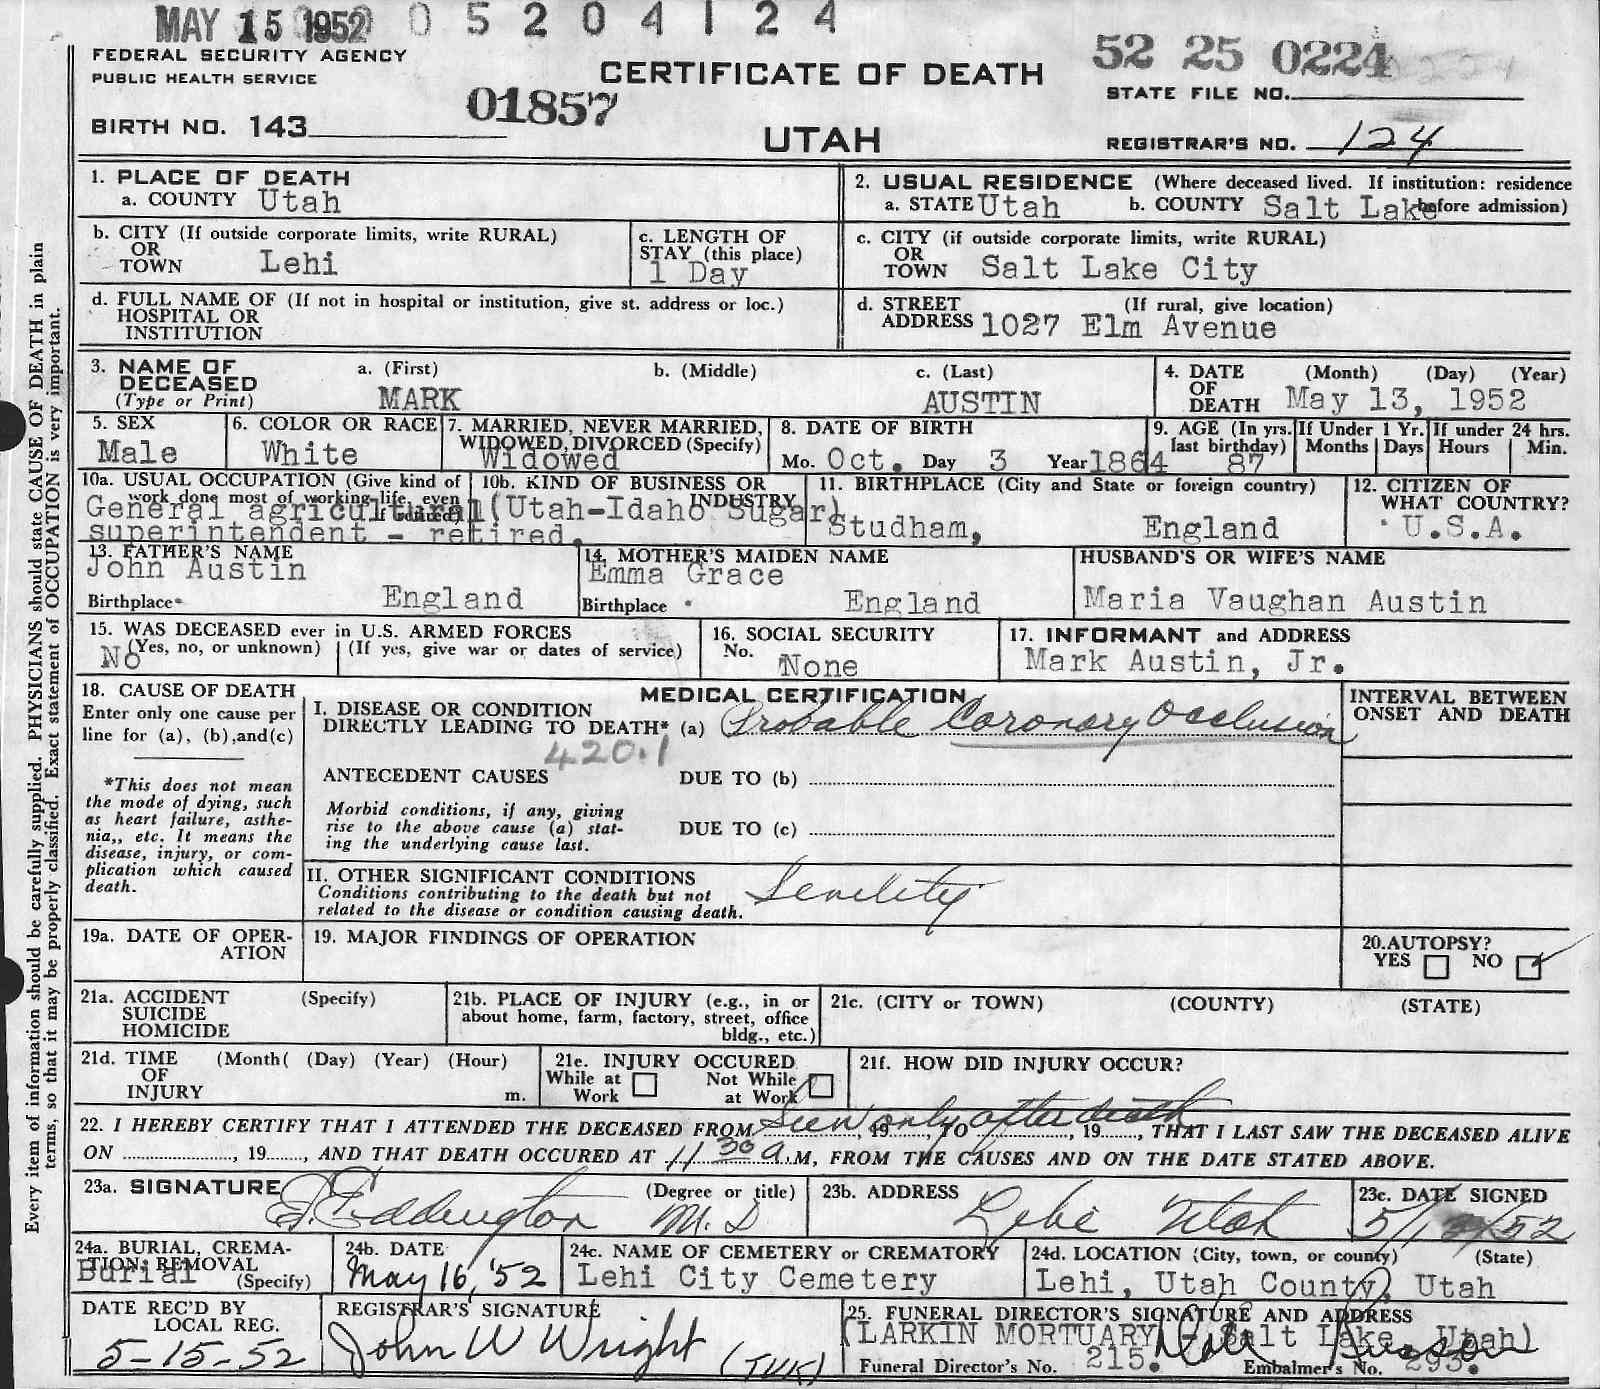 MAY 15 1952 0 5 2 0 4 1 2 4
FEDERAL SECURITY AGENCY
PUBLIC HEALTH SERVICE
CERTIFICATE OF DEATH
52 25 0224
STATE FILE NO.
01857
BIRTH NO. 143
UTAH
REGISTRAR'S NO. 124
1. PLACE OF DEATH
a. COUNTY Utah
2. USUAL RESIDENCE (Where deceased lived. If institution: residence before admission)
a. STATE Utah b. COUNTY Salt Lake
b. CITY (If outside corporate limits, write RURAL)
OR
TOWN Lehi
c. LENGTH OF
STAY (this place)
1 Day
c. CITY (if outside corporate limits, write RURAL)
OR
TOWN Salt Lake City
d. FULL NAME OF (If not in hospital or institution, give st. address or loc.)
HOSPITAL OR
INSTITUTION
d. STREET (If rural, give location)
ADDRESS 1027 Elm Avenue
3. NAME OF a. (First) b. (Middle) c. (Last)
DECEASED
(Type or Print) MARK AUSTIN
4. DATE (Month) (Day) (Year)
OF
DEATH May 13, 1952
5. SEX
Male
6. COLOR OR RACE
White
7. MARRIED, NEVER MARRIED,
WIDOWED, DIVORCED (Specify)
Widowed
8. DATE OF BIRTH
Mo. Oct. Day 3 Year 1864
9. AGE (In yrs. last birthday) 87
If Under 1 Yr.
Months Days
If under 24 hrs.
Hours Min.
10a. USUAL OCCUPATION (Give kind of
work done most of working life, even
if retired)
10b. KIND OF BUSINESS OR
INDUSTRY
General agricultural (Utah-Idaho Sugar)
superintendent - retired.
11. BIRTHPLACE (City and State or foreign country)
Studham, England
12. CITIZEN OF
WHAT COUNTRY?
U.S.A.
13. FATHER'S NAME
John Austin
Birthplace England
14. MOTHER'S MAIDEN NAME
Emma Grace
Birthplace England
HUSBAND'S OR WIFE'S NAME
Maria Vaughan Austin
15. WAS DECEASED ever in U.S. ARMED FORCES
(Yes, no, or unknown) (If yes, give war or dates of service)
No
16. SOCIAL SECURITY
No. None
17. INFORMANT and ADDRESS
Mark Austin, Jr.
18. CAUSE OF DEATH
Enter only one cause per
line for (a), (b), and (c)
*This does not mean
the mode of dying, such
as heart failure, asthe-
nia,, etc. It means the
disease, injury, or com-
plication which caused
death.
MEDICAL CERTIFICATION
I. DISEASE OR CONDITION
DIRECTLY LEADING TO DEATH* (a) Probable Coronary Occlusion
420.1
ANTECEDENT CAUSES DUE TO (b)
Morbid conditions, if any, giving
rise to the above cause (a) stat-
ing the underlying cause last.
DUE TO (c)
II. OTHER SIGNIFICANT CONDITIONS
Conditions contributing to the death but not
related to the disease or condition causing death.
Senility
INTERVAL BETWEEN
ONSET AND DEATH
19a. DATE OF OPER-
ATION
19. MAJOR FINDINGS OF OPERATION
20. AUTOPSY?
YES NO ✓
21a. ACCIDENT (Specify)
SUICIDE
HOMICIDE
21b. PLACE OF INJURY (e.g., in or
about home, farm, factory, street, office
bldg., etc.)
21c. (CITY or TOWN) (COUNTY) (STATE)
21d. TIME (Month( (Day) (Year) (Hour)
OF
INJURY m.
21e. INJURY OCCURED
While at Work Not While at Work
21f. HOW DID INJURY OCCUR?
Seen only after death
22. I HEREBY CERTIFY THAT I ATTENDED THE DECEASED FROM, 19, TO, 19, THAT I LAST SAW THE DECEASED ALIVE
ON, 19, AND THAT DEATH OCCURED AT 11 30 a.M, FROM THE CAUSES AND ON THE DATE STATED ABOVE.
23a. SIGNATURE Eddington (Degree or title) M.D
23b. ADDRESS Lehi Utah
23c. DATE SIGNED
5/1 /52
24a. BURIAL, CREMA-
TION, REMOVAL
(Specify)
Burial
24b. DATE
May 16, '52
24c. NAME OF CEMETERY or CREMATORY
Lehi City Cemetery
24d. LOCATION (City, town, or county) (State)
Lehi, Utah County, Utah
DATE REC'D BY
LOCAL REG.
5-15-52
REGISTRAR'S SIGNATURE
John W Wright
25. FUNERAL DIRECTOR'S SIGNATURE AND ADDRESS
(LARKIN MORTUARY - Salt Lake, Utah)
Funeral Director's No. 215. Embalmer's No. 293.
Every item of information should be carefully supplied. PHYSICIANS should state CAUSE OF DEATH in plain
terms, so that it may be properly classified. Exact statement of OCCUPATION is very important.